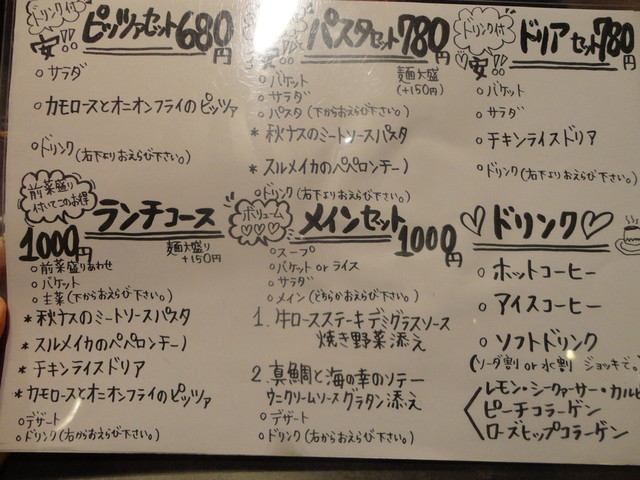 ドリンク付
安!!
ピッツァセット680円
○サラダ
○カモロースとオニオンフライのピッツァ
○ドリンク(右下よりおえらび下さい。)
安!!
パスタセット780円
麺大盛
(+150円)
○バケット
○サラダ
○パスタ(下からおえらび下さい。)
*秋ナスのミートソースパスタ
*スルメイカのペペロンチーノ
○ドリンク(右下よりおえらび下さい。)
ドリンク付
♡安!!
ドリアセット780円
○バケット
○サラダ
○チキンライスドリア
○ドリンク(右下よりおえらび下さい。)
前菜盛り
付いてこのお得
ランチコース
1000円
麺大盛り
+150円
○前菜盛りあわせ
○バケット
○主菜(下からおえらび下さい。)
*秋ナスのミートソースパスタ
*スルメイカのペペロンチーノ
*チキンライスドリア
*カモロースとオニオンフライのピッツァ
○デザート
○ドリンク(右からおえらび下さい。)
ボリューム
♡♡♡
メインセット
1000円
○スープ
○バケット or ライス
○サラダ
○メイン(どちらかおえらび下さい。)
1. 牛ロースステーキデミグラスソース
焼き野菜添え
2. 真鯛と海の幸のソテー
ウニクリームソースグラタン添え
○デザート
○ドリンク(右からおえらび下さい。)
♡ドリンク♡
○ホットコーヒー
○アイスコーヒー
○ソフトドリンク
(ソーダ割 or 水割 ジョッキで。)
レモン・シークァーサー・カルピ
ピーチコラーゲン
ローズヒップコラーゲン